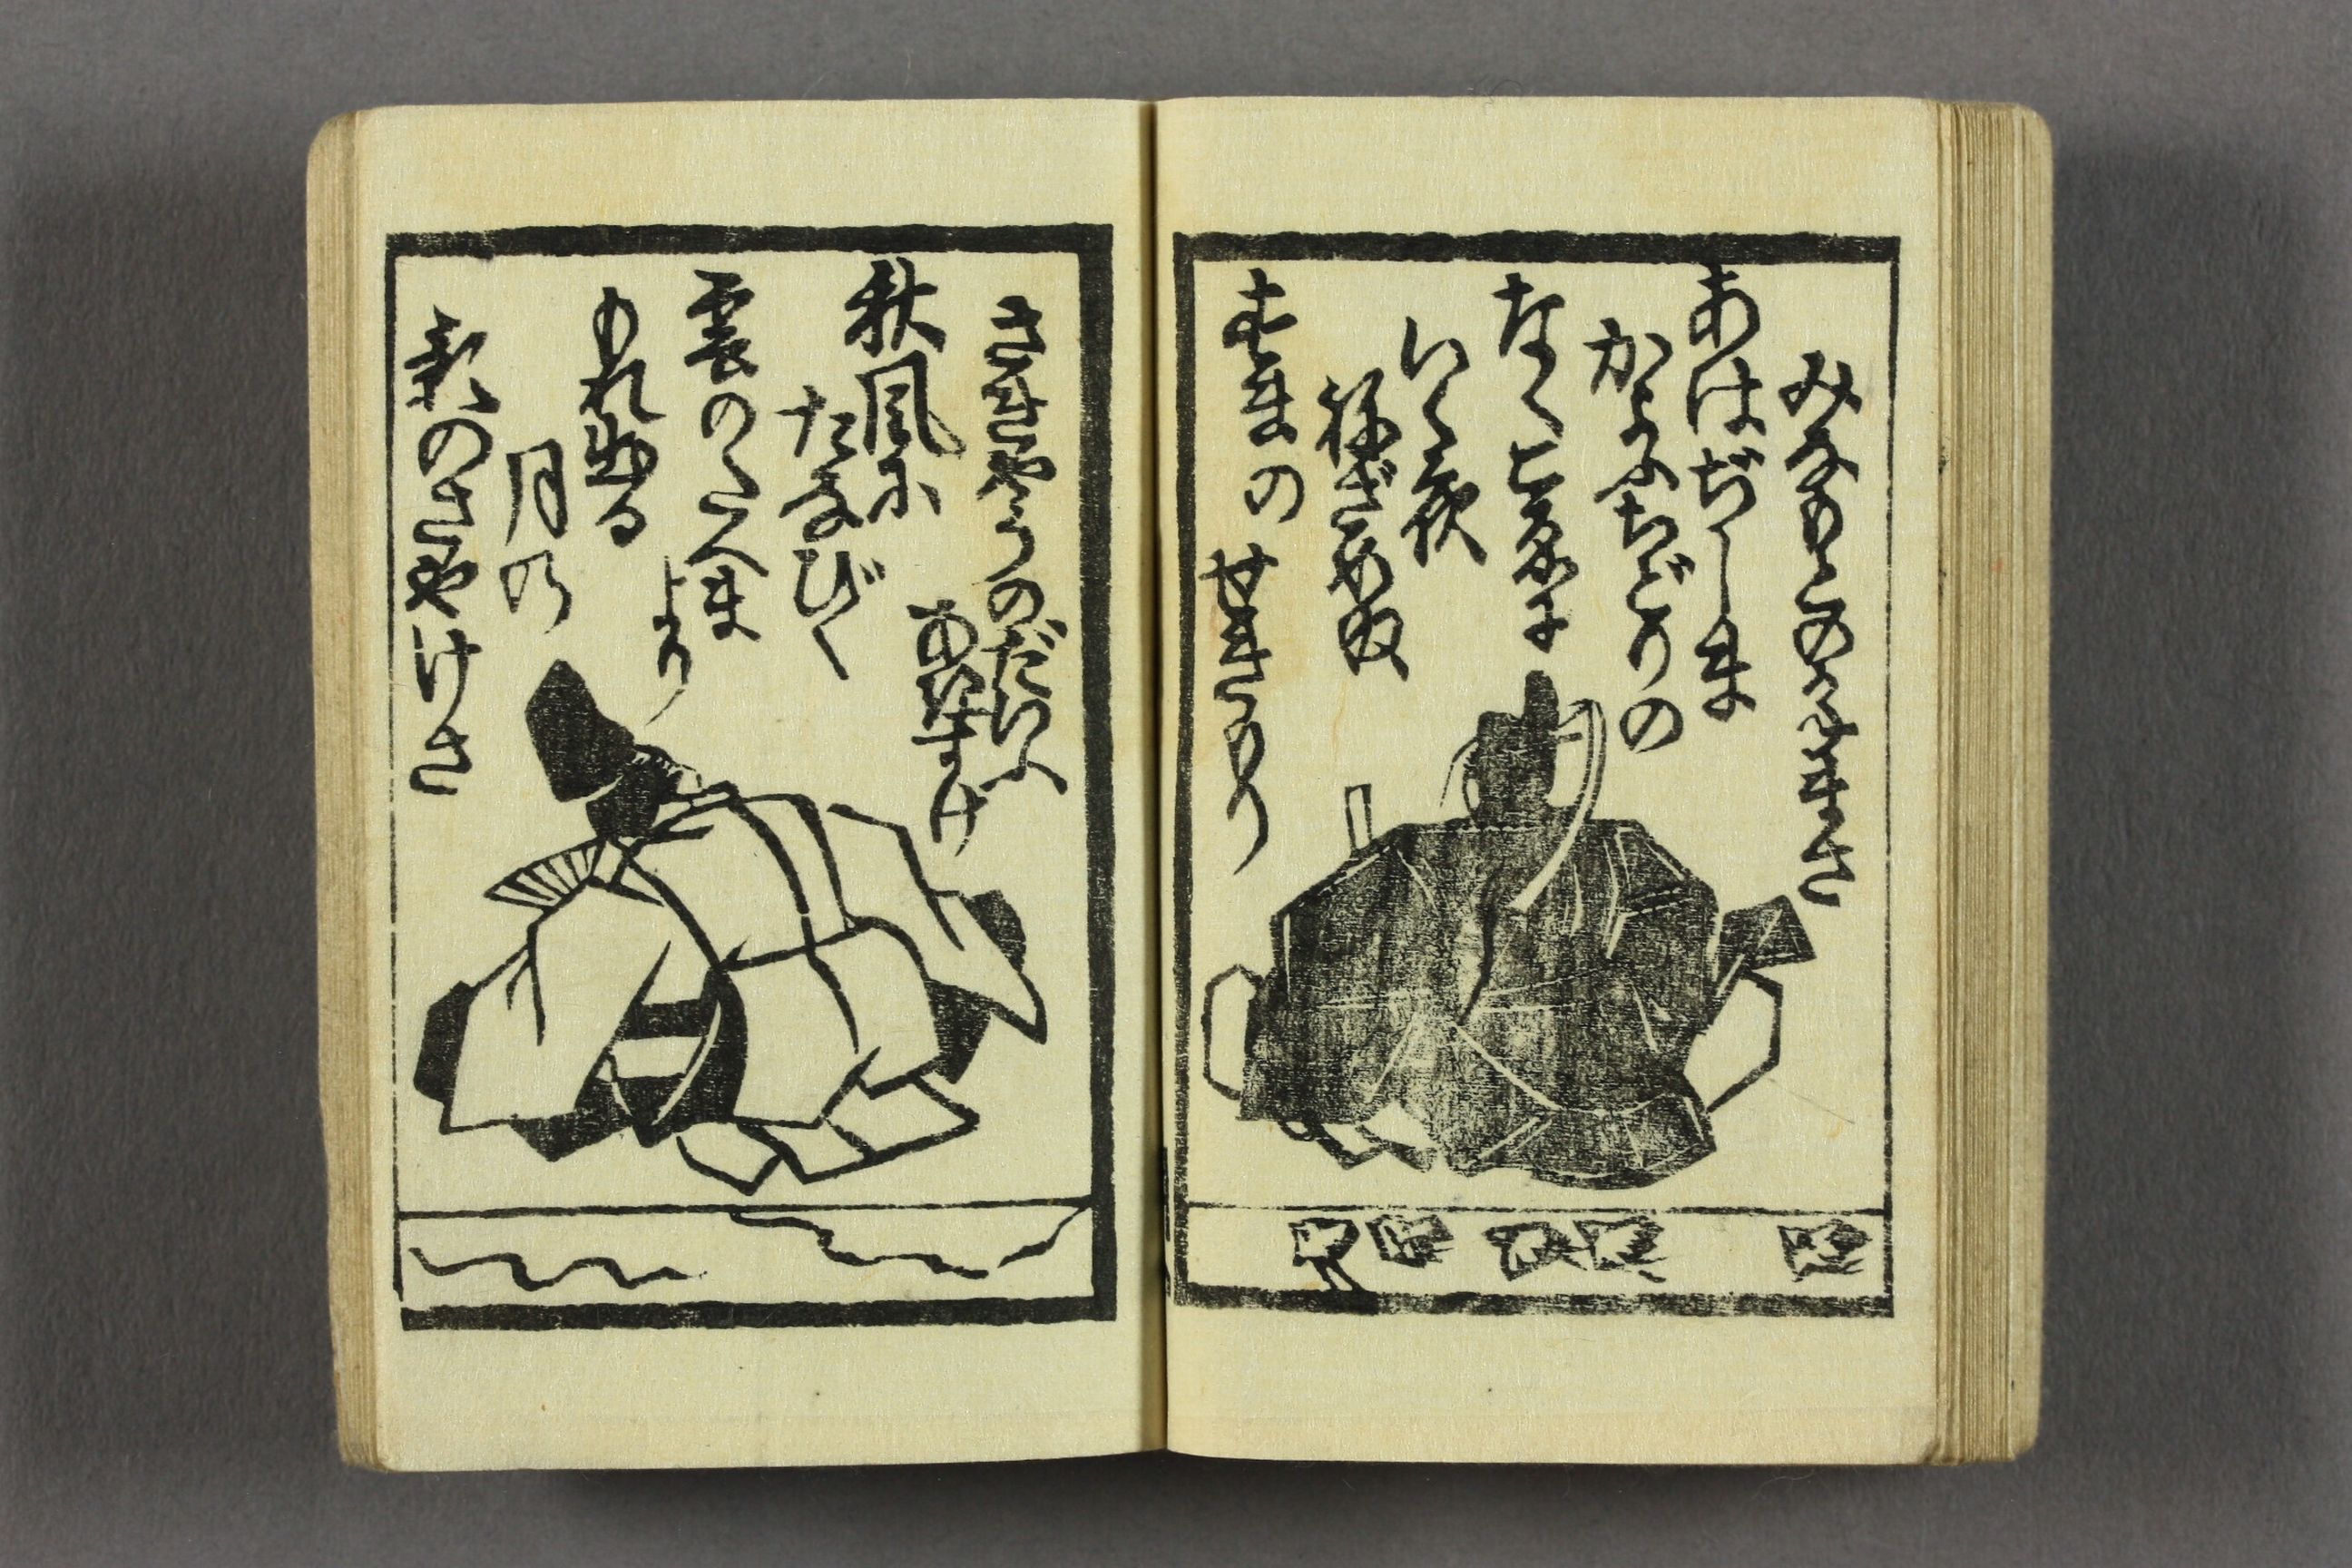 みなもとのかねまさ
あはぢしま
かよふちどりの
なくこゑに
いく夜
ねざめぬ
すまの
せきもり
さきやうのだいぶ
あきすけ
秋風に
たなびく
雲のたへま
より
もれ出る
月の
影のさやけさ